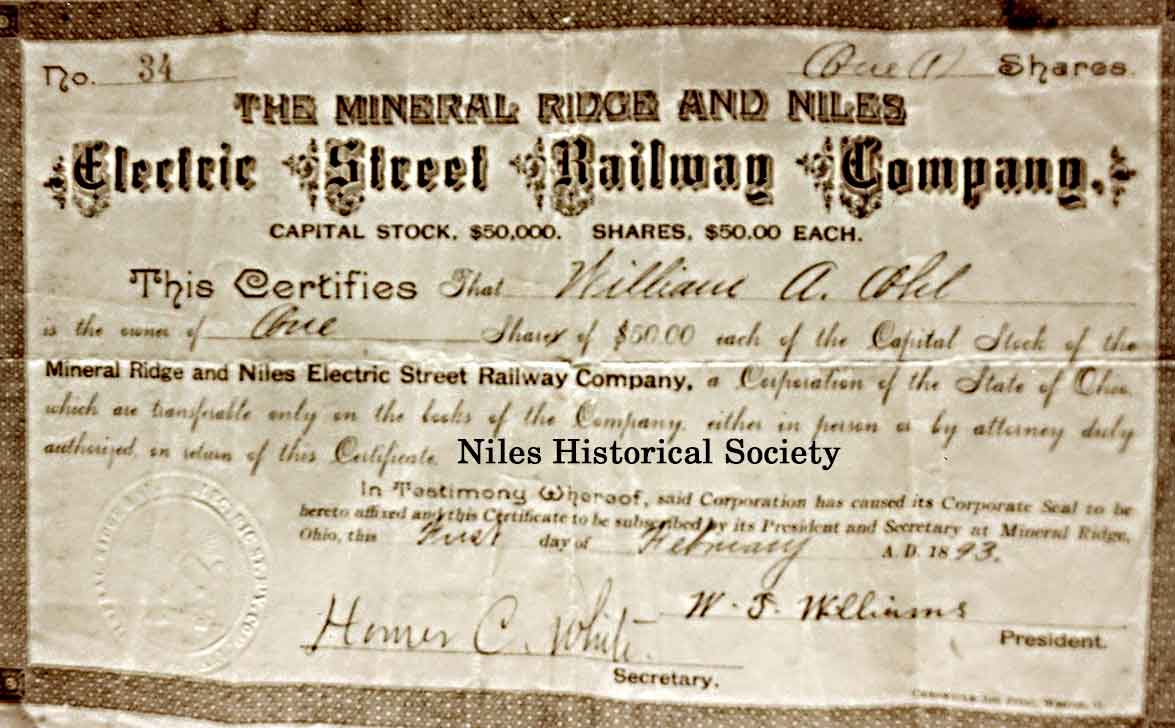 No. 34 One (1) Shares.
THE MINERAL RIDGE AND NILES
Electric Street Railway Company.
CAPITAL STOCK, $50,000. SHARES, $50.00 EACH.
This Certifies That William A. Ohl
is the owner of One Shares of $50.00 each of the Capital Stock of the
Mineral Ridge and Niles Electric Street Railway Company, a Corporation of the State of Ohio,
which are transferable only on the books of the Company, either in person or by attorney duly
authorized, on return of this Certificate.
Niles Historical Society
In Testimony Whereof, said Corporation has caused its Corporate Seal to be
hereto affixed and this Certificate to be subscribed by its President and Secretary at Mineral Ridge,
Ohio, this First day of February A.D. 1893.
W. T. Williams
President.
Homer C. White
Secretary.